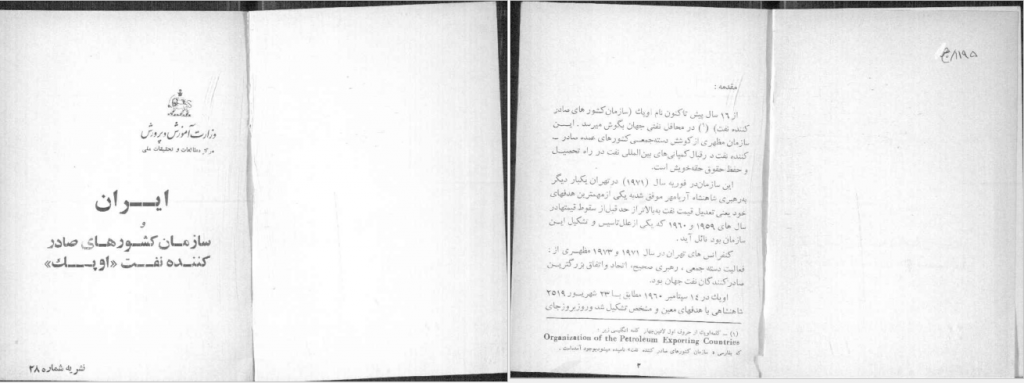 وزارت آموزش و پرورش
مرکز مطالعات و تحقیقات ملی
ایــران
و
سازمـان کشورهـای صادر
کننـده نفـت «اوپـك»
نشریه شماره ۲۸
مقدمه :
از ۱۶ سال پیش تاکنون نام اوپك (سازمان کشور های صادر
کننده نفت) (۱) در محافل نفتی جهان بگوش میرسد . ایــن
سازمان مظهری از کوشش دسته‌جمعی کشورهای عمده صادر ــ
کننده نفت در قبال کمپانی‌های بین‌المللی نفت در راه تحصیـل
و حفظ حقوق حقه خویش است.
این سازمان در فوریه سال (۱۹۷۱) در تهران یکبار دیگر
به‌رهبری شاهنشاه آریامهر موفق شد به یکی از مهمترین هدفهای
خود یعنی تعدیل قیمت نفت به بالاتر از حد قبل از سقوط قیمتها در
سال های ۱۹۵۹ و ۱۹۶۰ که یکی از علل تاسیس و تشکیل ایـن
سازمان بود نائل آید .
کنفرانس های تهران در سال ۱۹۷۱ و ۱۹۷۳ مظهـری از :
فعالیت دسته جمعی ، رهبری صحیح، اتحاد و اتفاق بزرگتریـن
صادرکنندگان نفت جهان بود.
اوپك در ۱۴ سپتامبر ۱۹۶۰ مطابق بـا ۲۳ شهریـور ۲۵۱۹
شاهنشاهی با هدفهای معین و مشخص تشکیل شد و روز بروز جای
(۱) ــ کلمه اوپك از حروف اول لاتین چهار کلمه انگلیسی زیر :
Organization of the Petroleum Exporting Countries
که بفارسی « سازمان کشورهای صادر کننده نفت» نامیده میشود بوجود آمده‌است .
۳